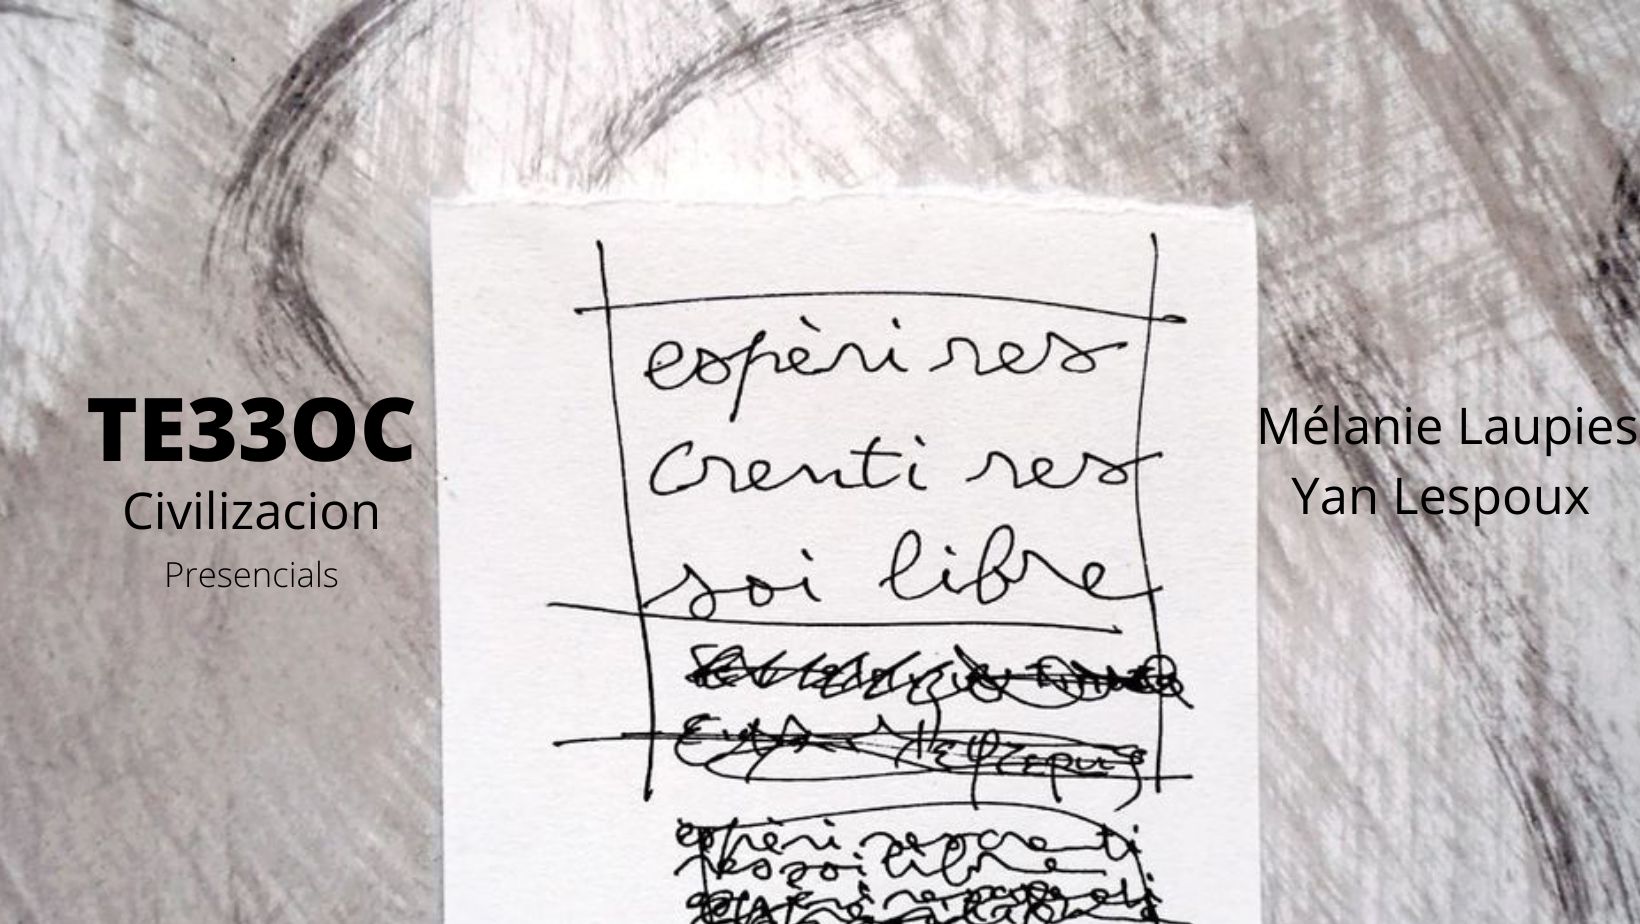 TE33OC
Civilizacion
Presencials
espèri res
crenti res
soi libre
espèri res crenti
res soi libre
Mélanie Laupies
Yan Lespoux